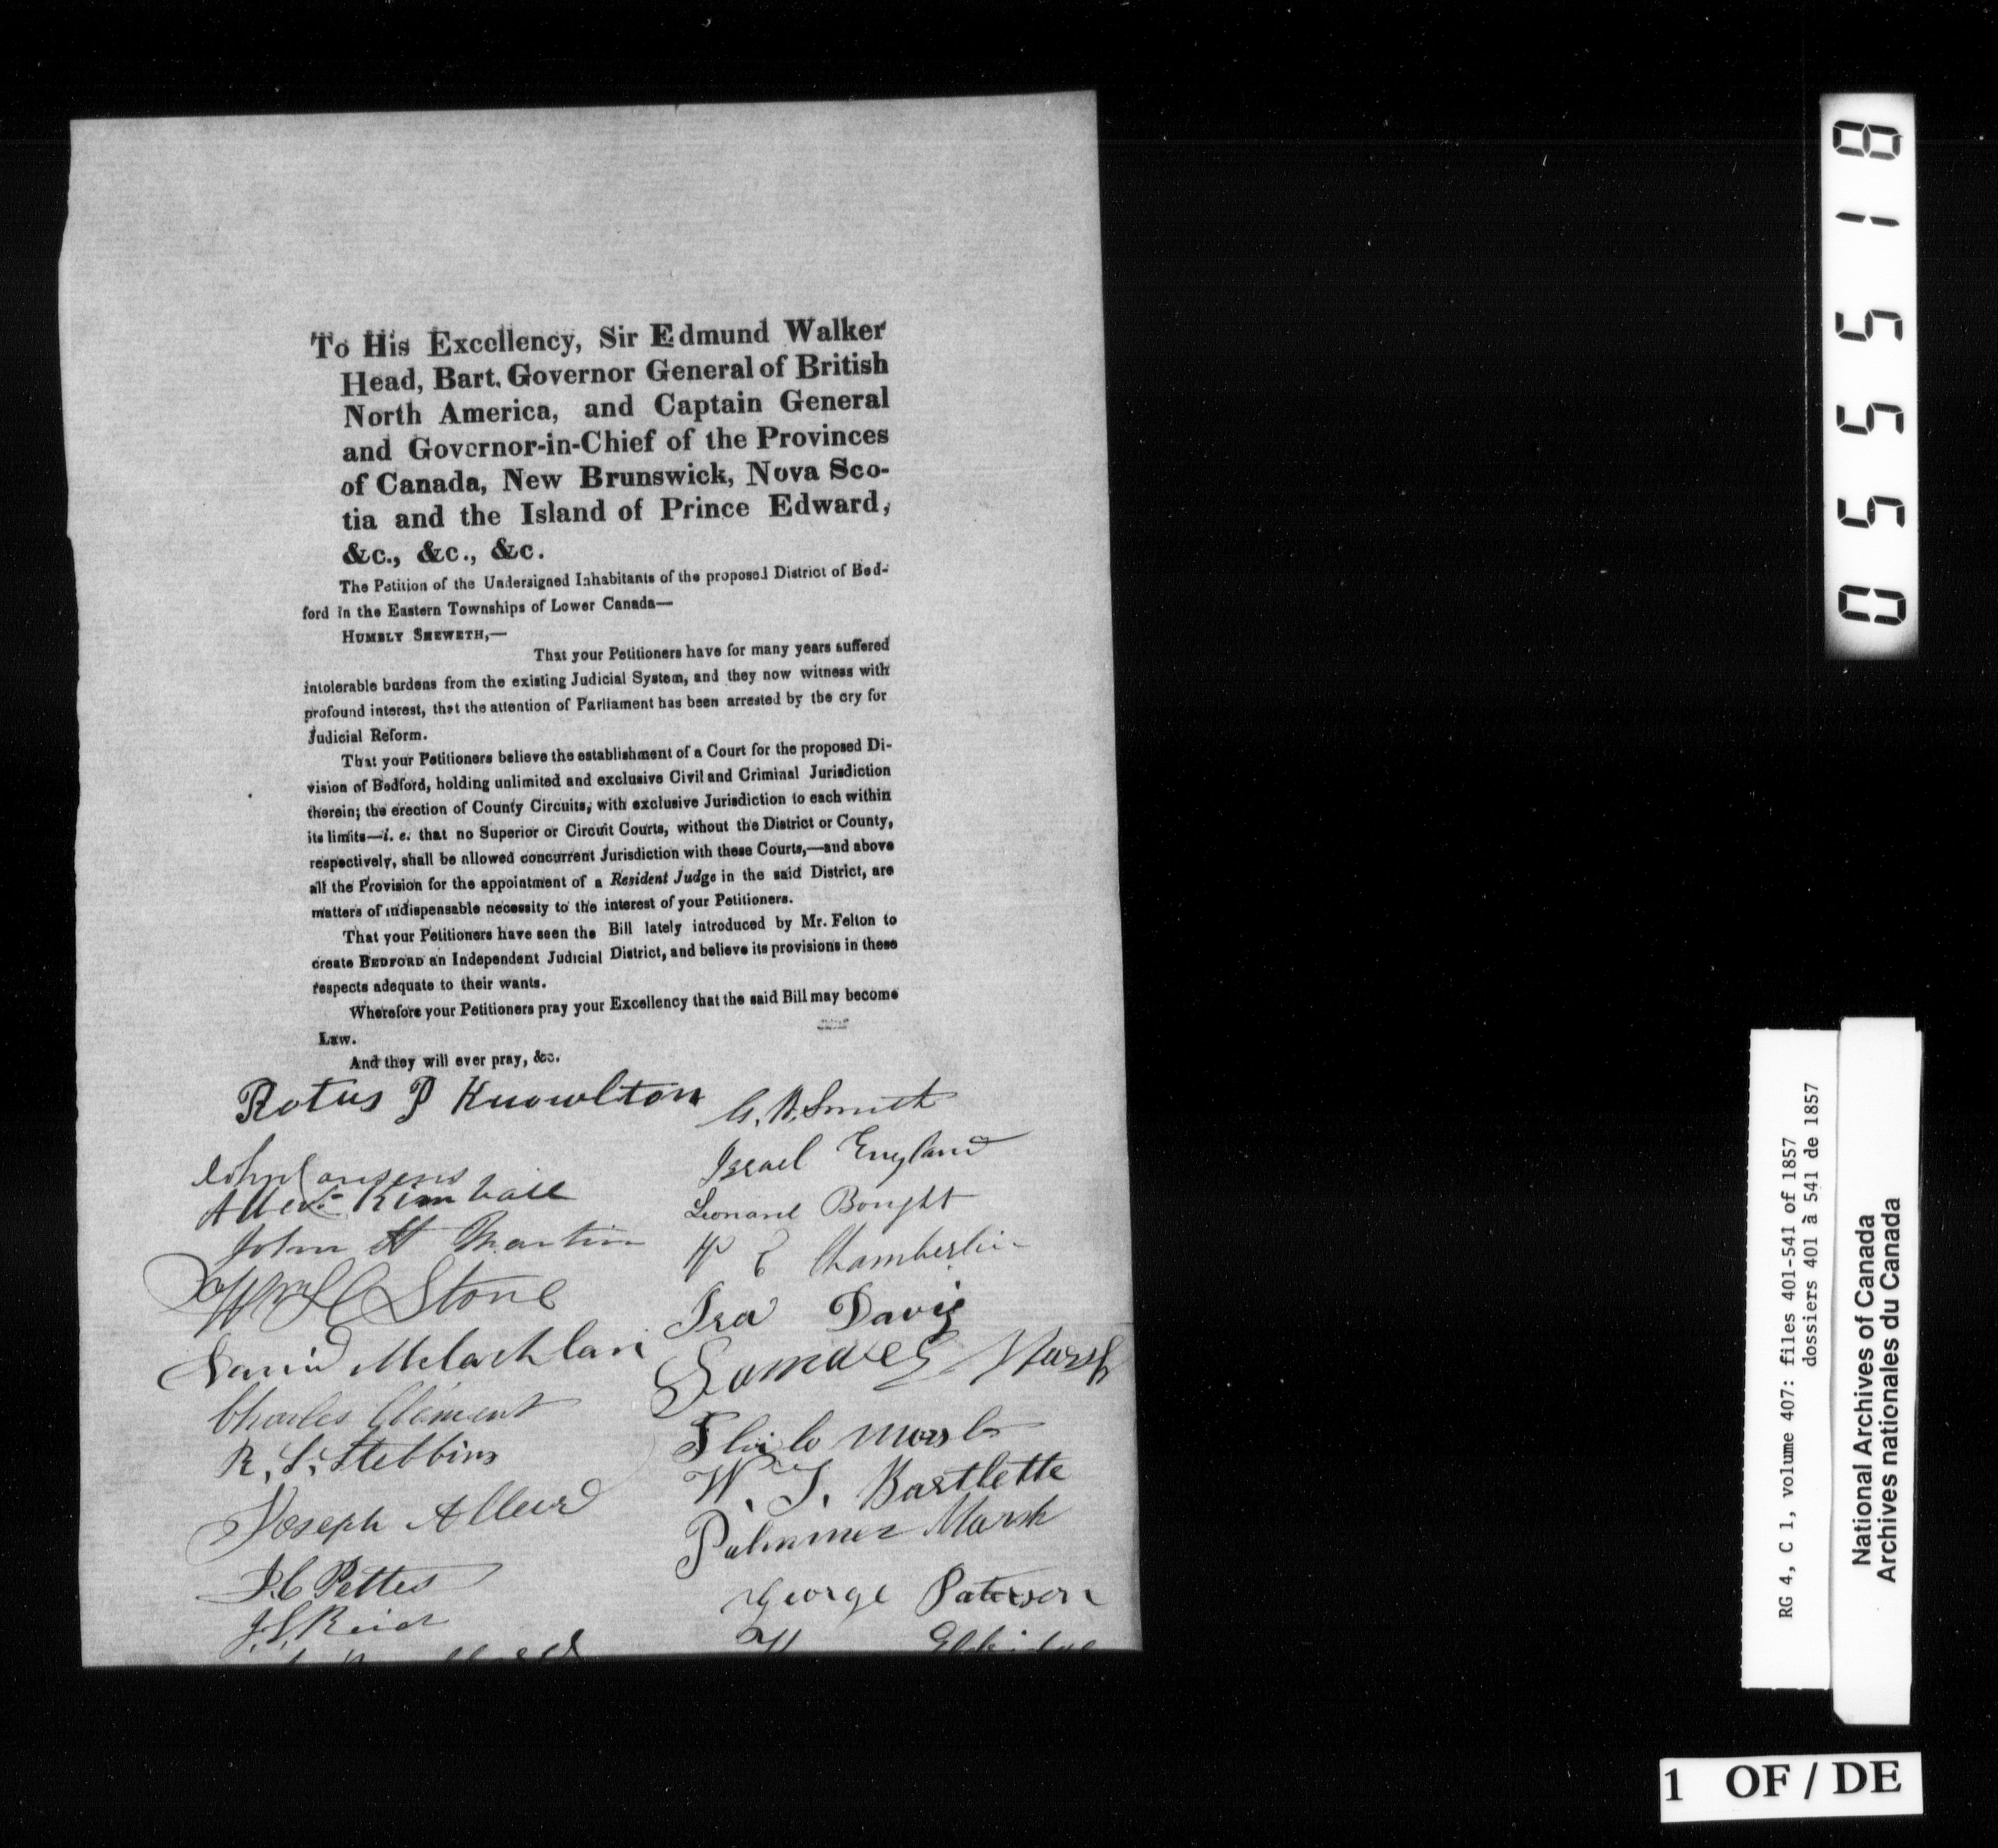 To His Excellency, Sir Edmund Walker
Head, Bart. Governor General of British
North America, and Captain General
and Governor-in-Chief of the Provinces
of Canada, New Brunswick, Nova Sco-
tia and the Island of Prince Edward,
&c., &c., &c.
The Petition of the Undersigned Inhabitants of the proposed District of Bed-
ford in the Eastern Townships of Lower Canada—
HUMBLY SHEWETH,—
That your Petitioners have for many years suffered
intolerable burdens from the existing Judicial System, and they now witness with
profound interest, that the attention of Parliament has been arrested by the cry for
Judicial Reform.
That your Petitioners believe the establishment of a Court for the proposed Di-
vision of Bedford, holding unlimited and exclusive Civil and Criminal Jurisdiction
therein; the erection of County Circuits, with exclusive Jurisdiction to each within
its limits—i. e. that no Superior or Circuit Courts, without the District or County,
respectively, shall be allowed concurrent Jurisdiction with these Courts,—and above
all the Provision for the appointment of a Resident Judge in the said District, are
matters of indispensable necessity to the interest of your Petitioners.
That your Petitioners have seen the Bill lately introduced by Mr. Felton to
create BEDFORD an Independent Judicial District, and believe its provisions in these
respects adequate to their wants.
Wherefore your Petitioners pray your Excellency that the said Bill may become
Law.
And they will ever pray, &c.
Rotus P Knowlton
John
Albert Kimball
John H Martin
Wm H C Stone
David McLachlan
Charles Clement
R. S. Stebbins
Joseph Allard
J. C Pettes
J. S. Reid
G. A. Smith
Israel England
Leonard Bought
H E Chamberlin
Ira Davis
Samuel Marsh
Philo Marsh
W. S. Bartlette
Palmmer Marsh
George Paterson
81550
RG 4, C 1, volume 407: files 401-541 of 1857
dossiers 401 à 541 de 1857
National Archives of Canada
Archives nationales du Canada
1 OF / DE